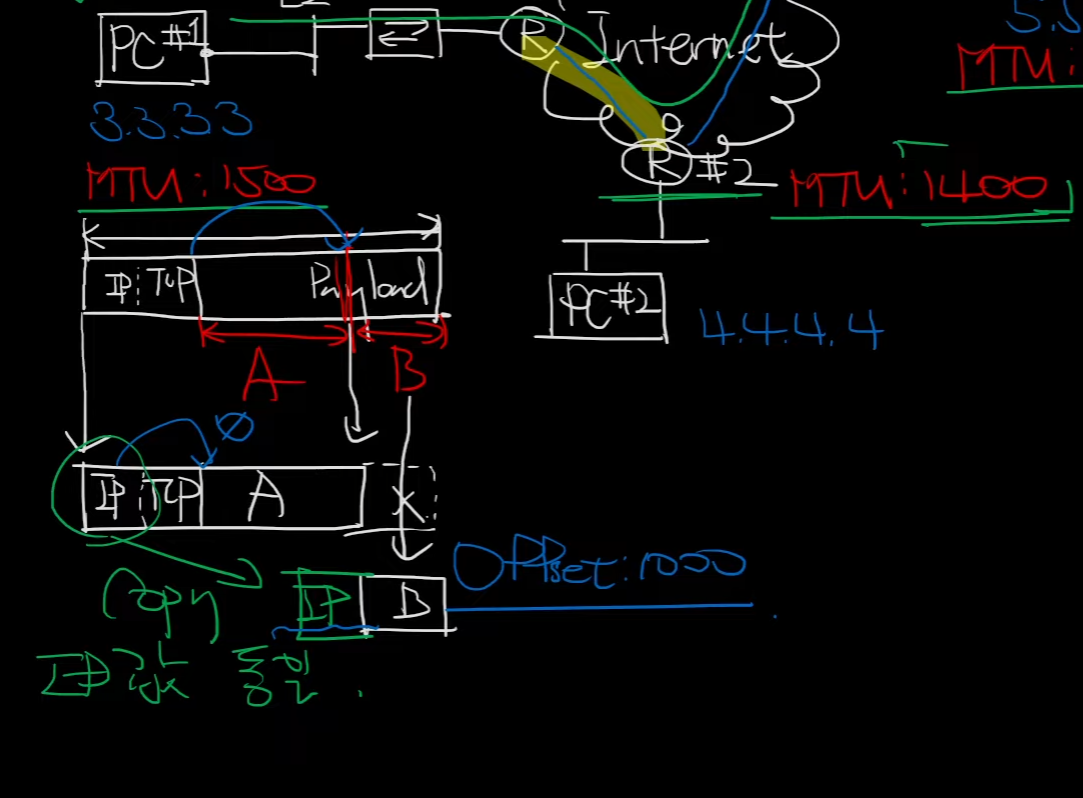 PC #1
R
Internet
5.5
MTU:
3.3.3.3
R #2
MTU: 1500
MTU: 1400
IP TCP Payload
PC #2
4.4.4.4
A B
0
IP TCP A X
Offset: 1000
Copy IP B
IP 값 동일.